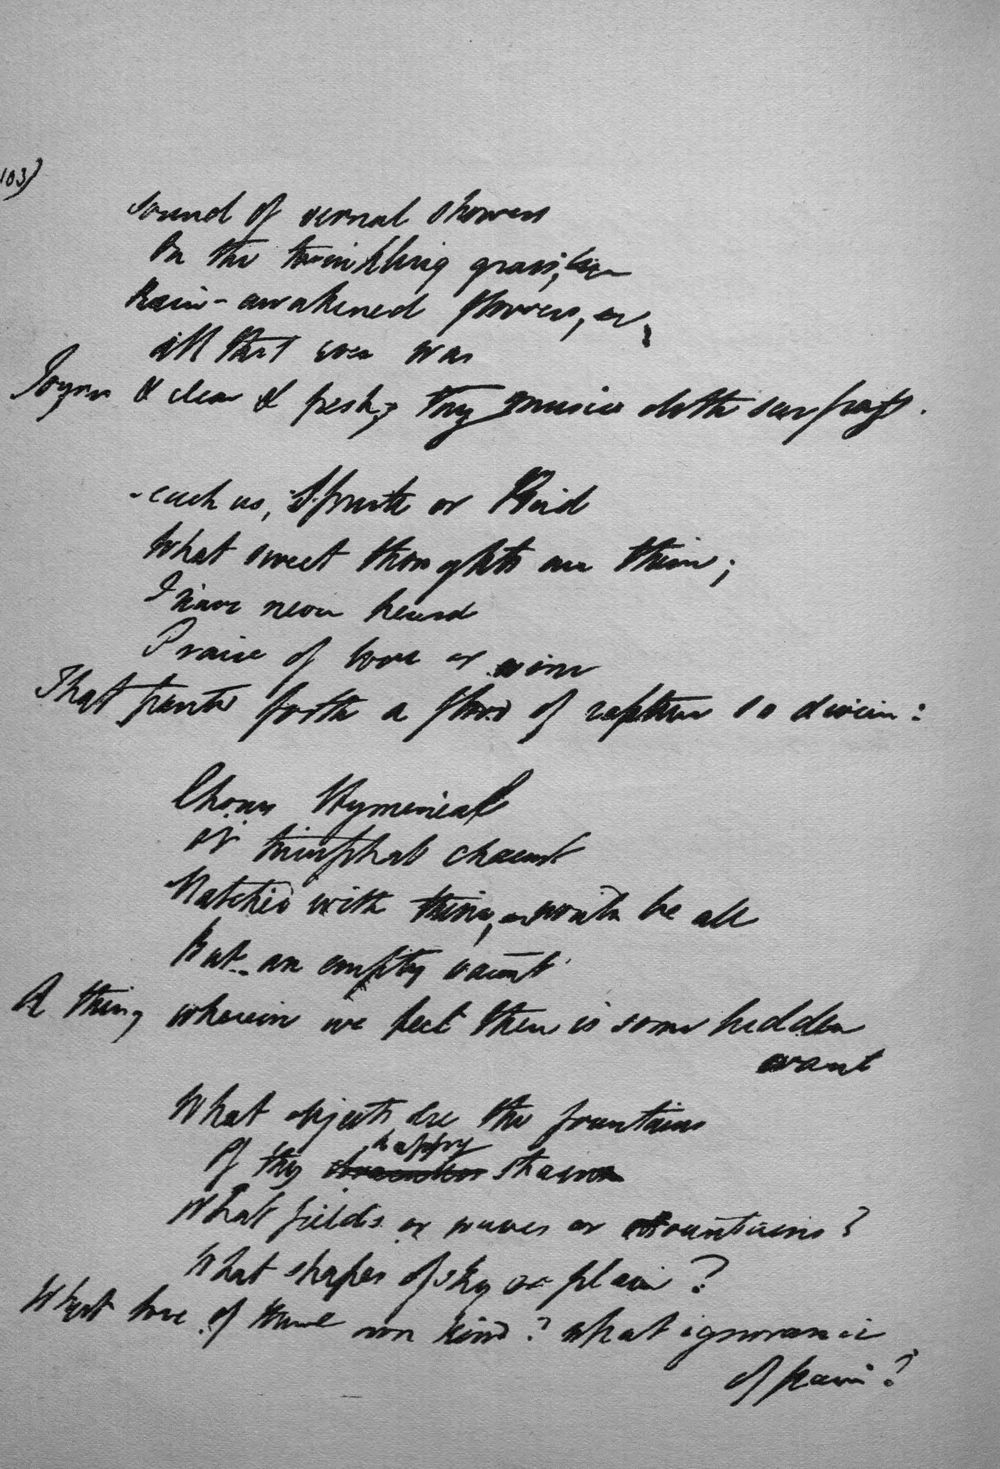 103)
Sound of vernal showers
On the twinkling grass,
Rain-awakened flowers,
all that ever was
Joyous & clear & fresh, thy music doth surpass.
Teach us, Sprite or Bird
What sweet thoughts are thine;
I have never heard
Praise of love or wine
That pants forth a flood of rapture so divine:
Chorus Hymeneal
Or triumphal chaunt
Matched with thine, would be all
But an empty vaunt
A thing wherein we feel there is some hidden
want
What objects are the fountains
happy
Of thy strain
What fields or waves or mountains?
What shapes of sky or plain?
What love of thine own kind? what ignorance
of pain?